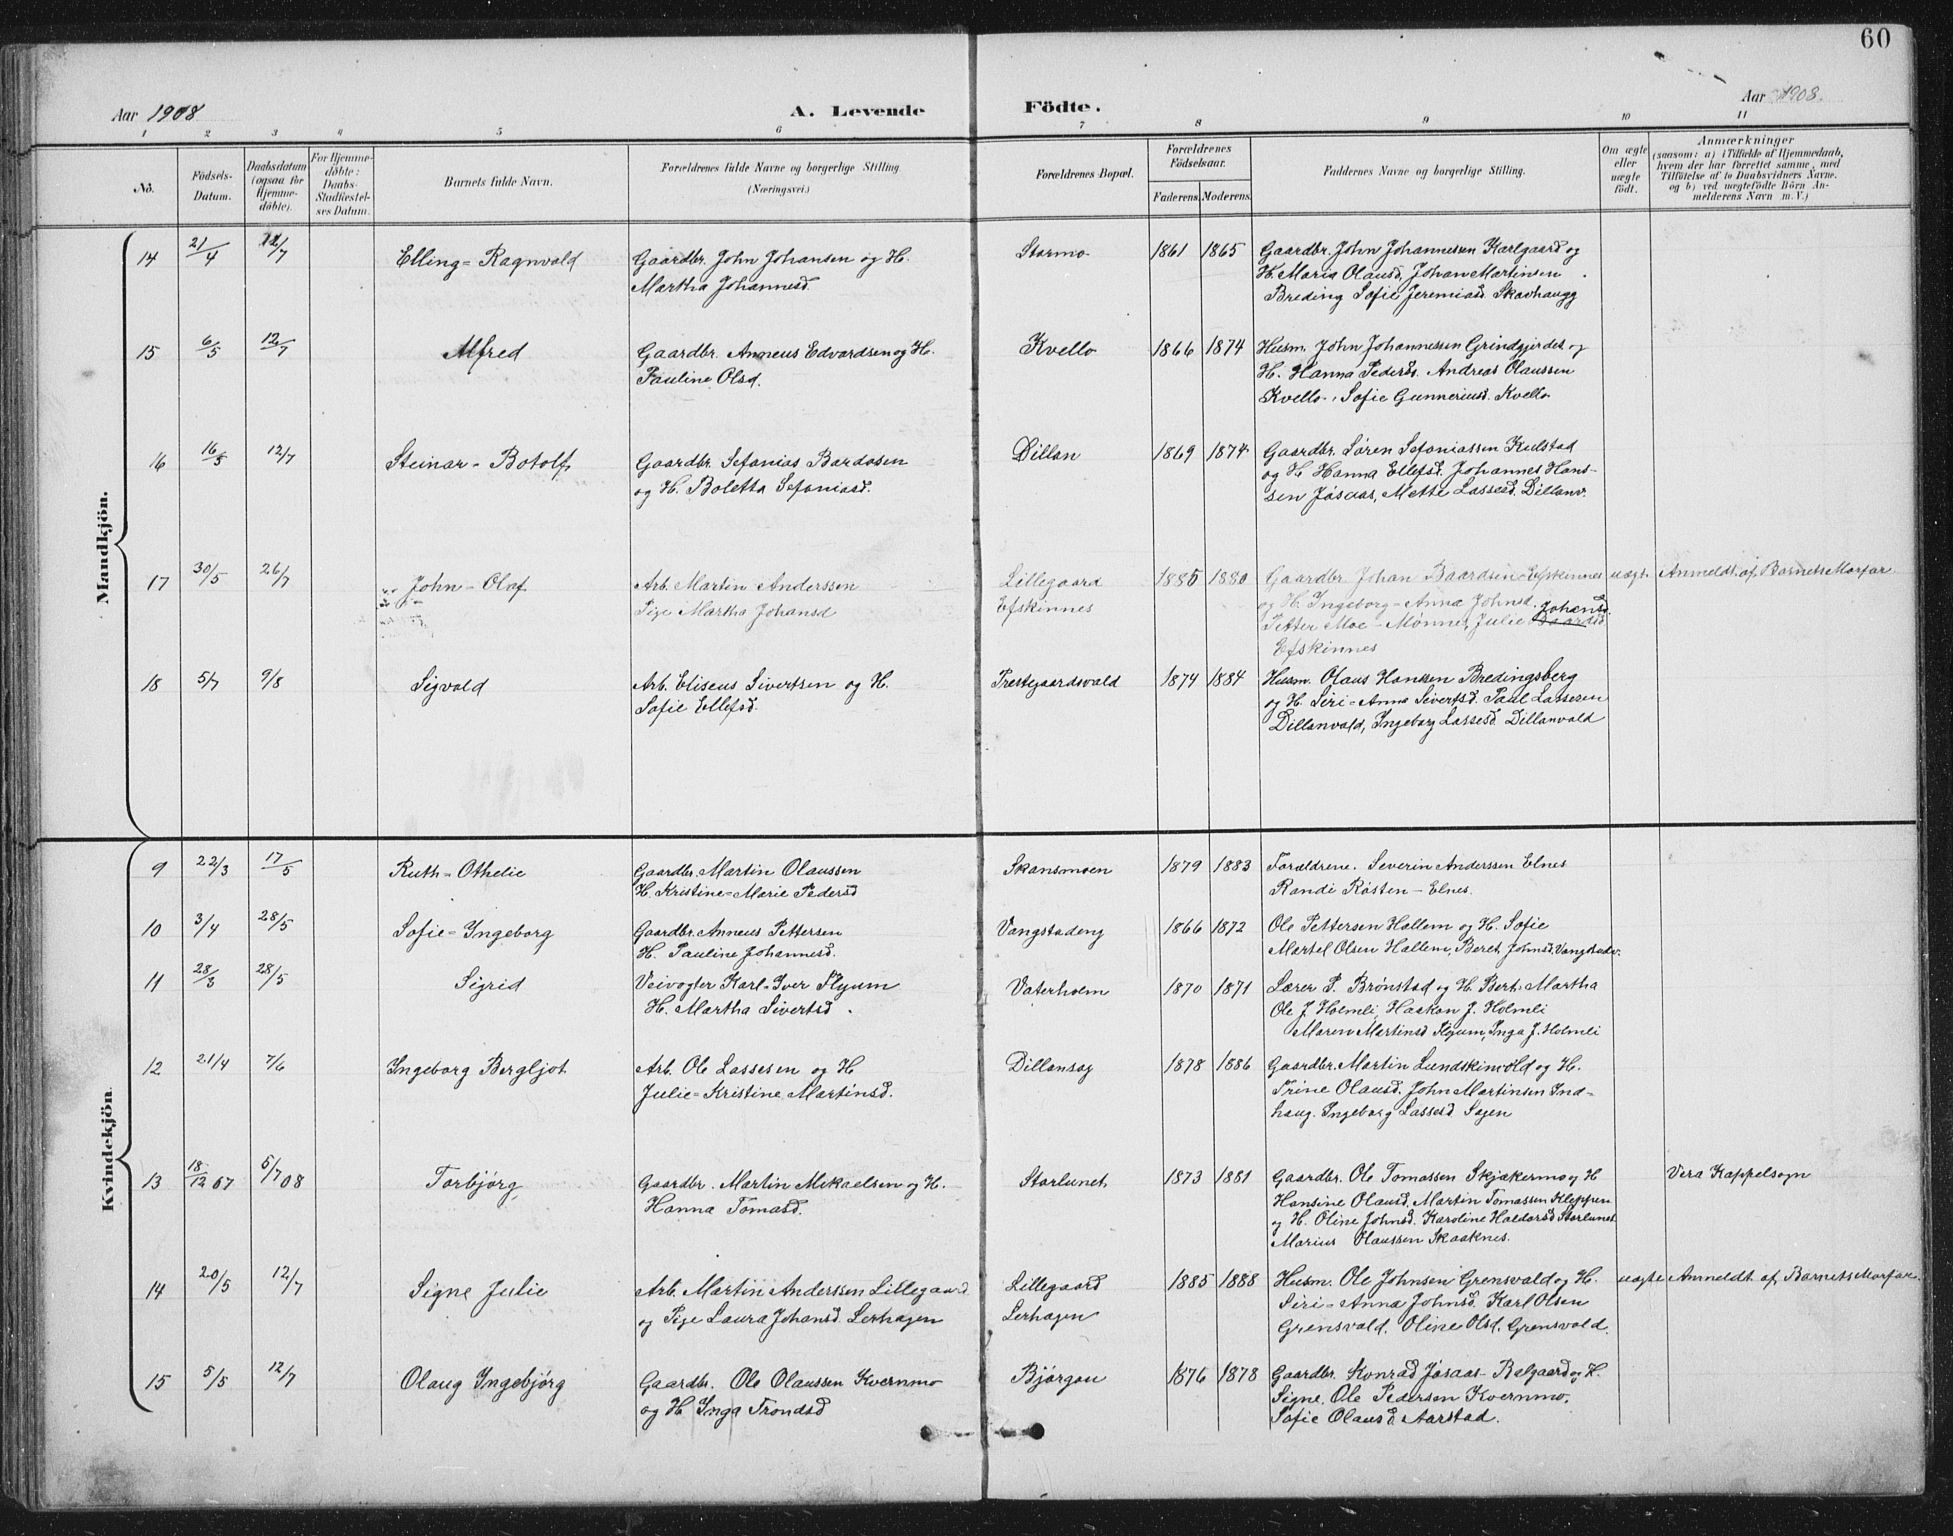 60
Aar 1908 A. Levende Födte. Aar 1908.
1 2 3 4 5 6 7 8 9 10 11
No. Födsels-Datum. Daabsdatum (ogsaa for Hjemme-döbte). For Hjemme-döbte: Daabs-Stadfæstel-ses Datum. Barnets fulde Navn. Forældrenes fulde Navne og borgerlige Stilling (Næringsvei.) Forældrenes Bopæl. Forældrenes Födselsaar. Faderens. Moderens. Faddernes Navne og borgerlige Stilling. Om ægte eller uægte födt. Anmærkninger (saasom: a) i Tilfælde af Hjemmedaab, hvem der har forrettet samme, med Tilföielse af to Daabsvidners Navne, og b) ved uægtefödte Börn An-melderens Navn m. V.)
Mandkjön.
14 21/4 12/7 Elling-Ragnvald Gaardbr. John Johansen og H. Stormo 1861 1865 Gaardbr. John Johannesen Karlgaard og
Martha Johannesd. H. Maria Olausd, Johan Martinsen
Breding Sofie Jeremiasd. Skavhaugg
15 6/5 12/7 Alfred Gaardbr. Anneus Edvardsen og H. Kvello 1866 1874 Husm. John Johannessen Grindgjerdet og
Pauline Olsd. H. Hanna Pedersd. Andreas Olaussen
Kvello, Sofie Gunneriusd. Kvello
16 16/5 12/7 Steinar-Botolf Gaardbr. Sefanias Bardosen Dillan 1869 1874 Gaardbr. Søren Sefaniassen Kulstad
og H. Boletta Sefaniasd. og H. Hanna Ellefsd. Johannes Hans-
sen Jøsaas, Mette Lassesd. Dillanv.
17 30/5 26/7 John-Olaf Arb. Martin Anderssen Lillegaard 1885 1880 Gaardbr. Johan Baardsen Efskinnes uægt. Anmeldt af Barnets Morfar
Pige Martha Johansd Efskinnes og H. Ingeborg-Anna Johnsd. Johansd.
Petter Moe-Mønnes, Julie Baardsd
Efskinnes
18 5/7 9/8 Sigvald Arb. Eliseus Sivertsen og H. Prestegaardsvald 1874 1884 Husm. Olaus Hansen Bredingsberg
Sofie Ellefsd. og H. Siri-Anna Sivertsd. Paul Lassesen
Dillanvald, Ingeborg Lassesd. Dillanvald
Kvindekjön.
9 22/3 17/5 Ruth-Othelie Gaardbr. Martin Olaussen Skansmoen 1879 1883 Forældrene. Severin Anderssen Elnes
H. Kristine-Marie Pedersd Randi Røsten-Elnes.
10 3/4 28/5 Sofie-Ingeborg Gaardbr. Anneus Pettersen Vangstadeng 1866 1872 Ole Pettersen Hallem og H. Sofie
H. Pauline Johannesd. Martel Olsen Hallem, Beret Johnsd. Vangstadv.
11 28/3 28/5 Sigrid Veivogter Karl-Iver Flyum Vaterholm 1870 1871 Lærer P. Brønstad og H. Bert. Martha
H. Martha Sivertsd. Ole J Holmli, Haakon J. Holmli
Maren Martinsd Flyum, Inga J. Holmli
12 21/4 7/6 Ingeborg Bergljot Arb. Ole Lassesen og H Dillansag 1878 1886 Gaardbr. Martin Lundskinvold og H.
Julie-Kristine Martinsd. Trine Olausd. John Martinsen Ind-
haug. Ingeborg Lassesd Sagen
13 18/12 07 5/7 08 Torbjørg Gaardbr. Martin Mikaelsen og H. Storlunet 1873 1881 Gaardbr. Ole Tomassen Skjækermo og H Vera Kappelsogn
Hanna Tomasd. Hansine Olausd. Martin Tomassen Kleppen
og H. Oline Johnsd. Karoline Haldorsd Storlunet
Marius Olaussen Skaaknes.
14 20/5 12/7 Signe Julie Arb. Martin Anderssen Lillegaard Lillegaard 1885 1888 Husm. Ole Johnsen Grensvald og H. uægte Anmeldt af Barnets Morfar.
og Pige Laura Johansd. Lerhagen Lerhagen Siri-Anna Johnsd. Karl Olsen
Grensvald. Oline Olsd. Grensvald.
15 5/5 12/7 Olaug Ingebjørg Gaardbr. Ole Olaussen Kvernmo Bjørgan 1876 1878 Gaardbr. Konrad Jøsaas-Balgaard og H.
og H Inga Trondsd Signe. Ole Pedersen Kvernmo,
Sofie Olausd. Aarstad.